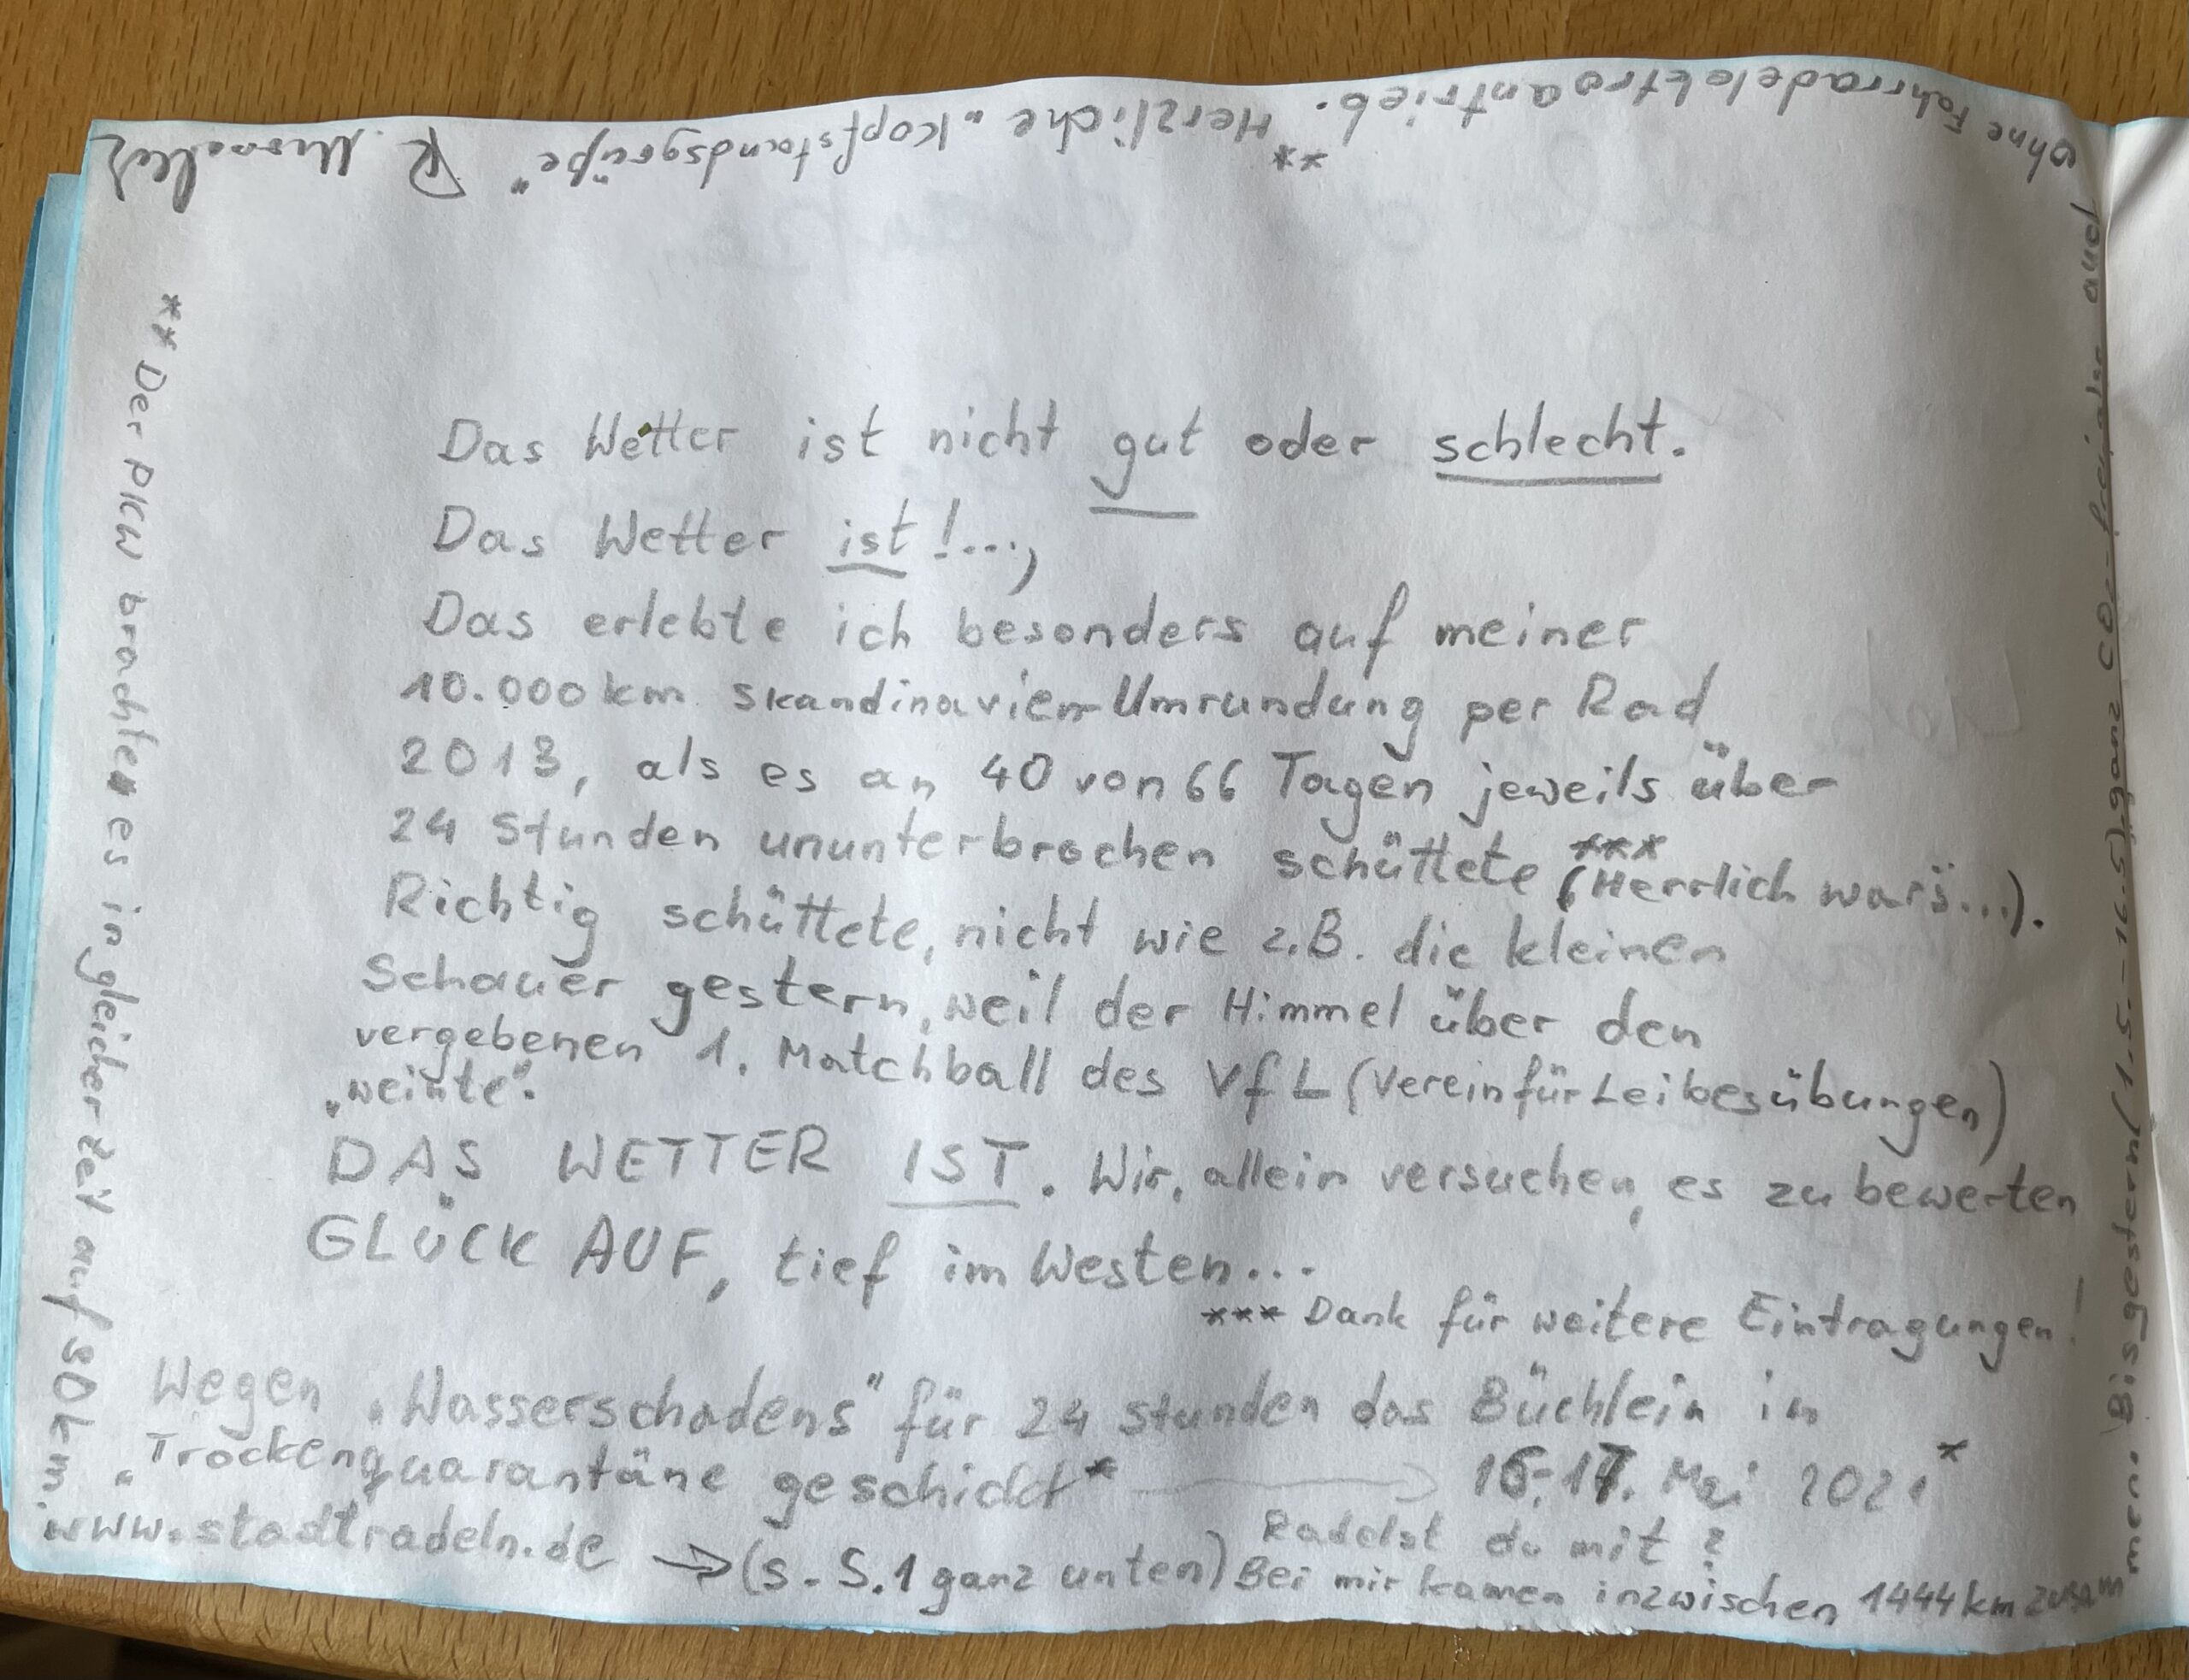 Das Wetter ist nicht gut oder schlecht.
Das Wetter ist!...,
Das erlebte ich besonders auf meiner
10.000 km Skandinavien-Umrundung per Rad
2013, als es an 40 von 66 Tagen jeweils über
24 Stunden ununterbrochen schüttete (Herrlich war's...). ***
Richtig schüttete, nicht wie z.B. die kleinen
Schauer gestern, weil der Himmel über den
vergebenen 1. Matchball des VfL (Verein für Leibesübungen)
„weinte".
DAS WETTER IST. Wir, allein versuchen, es zu bewerten
GLÜCK AUF, tief im Westen...
*** Dank für weitere Eintragungen!
Wegen „Wasserschadens" für 24 Stunden das Büchlein in
„Trockenquarantäne geschickt* 16.-17. Mai 2021*
www.stadtradeln.de → (s. S.1 ganz unten) Radelst du mit?
Bei mir kamen inzwischen 1444 km zusam
men. Bis gestern (1.5.-16.5) ganz CO2-frei und
ohne Fahrradelektroantrieb. ** Herzliche „Kopfstandsgrüße" R.
** Der PKW brachte es in gleicher Zeit auf 80 km.